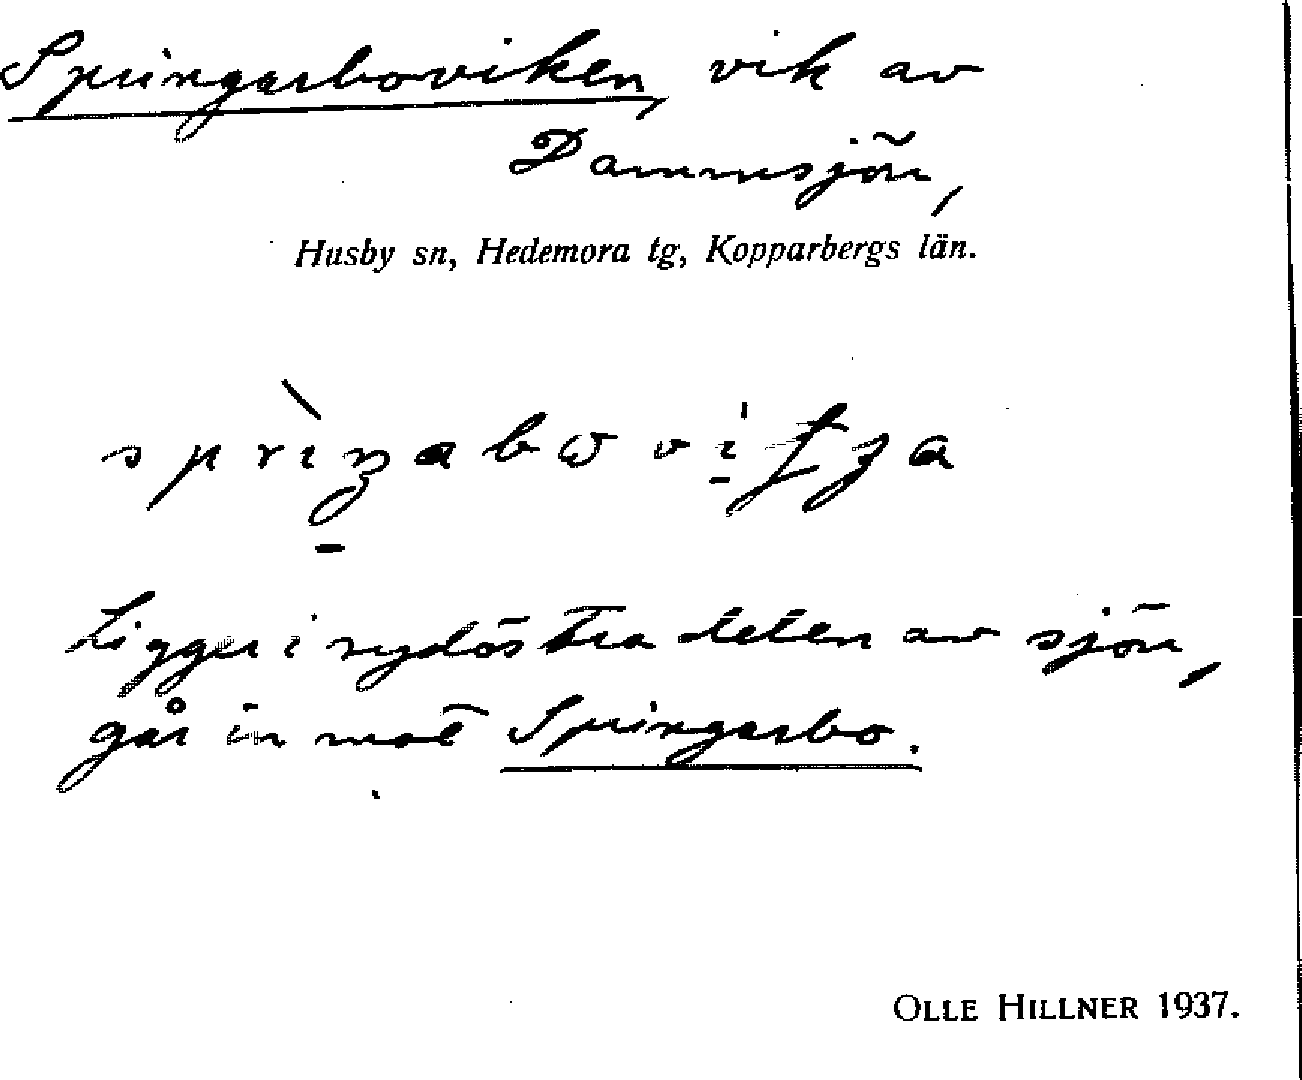 Springarboviken, vik av
Dammsjön,
Husby sn, Hedemora tg, Kopparbergs län.
Ligger i sydöstra delen av sjön,
går in mot Springarbo.
OLLE HILLNER 1937.